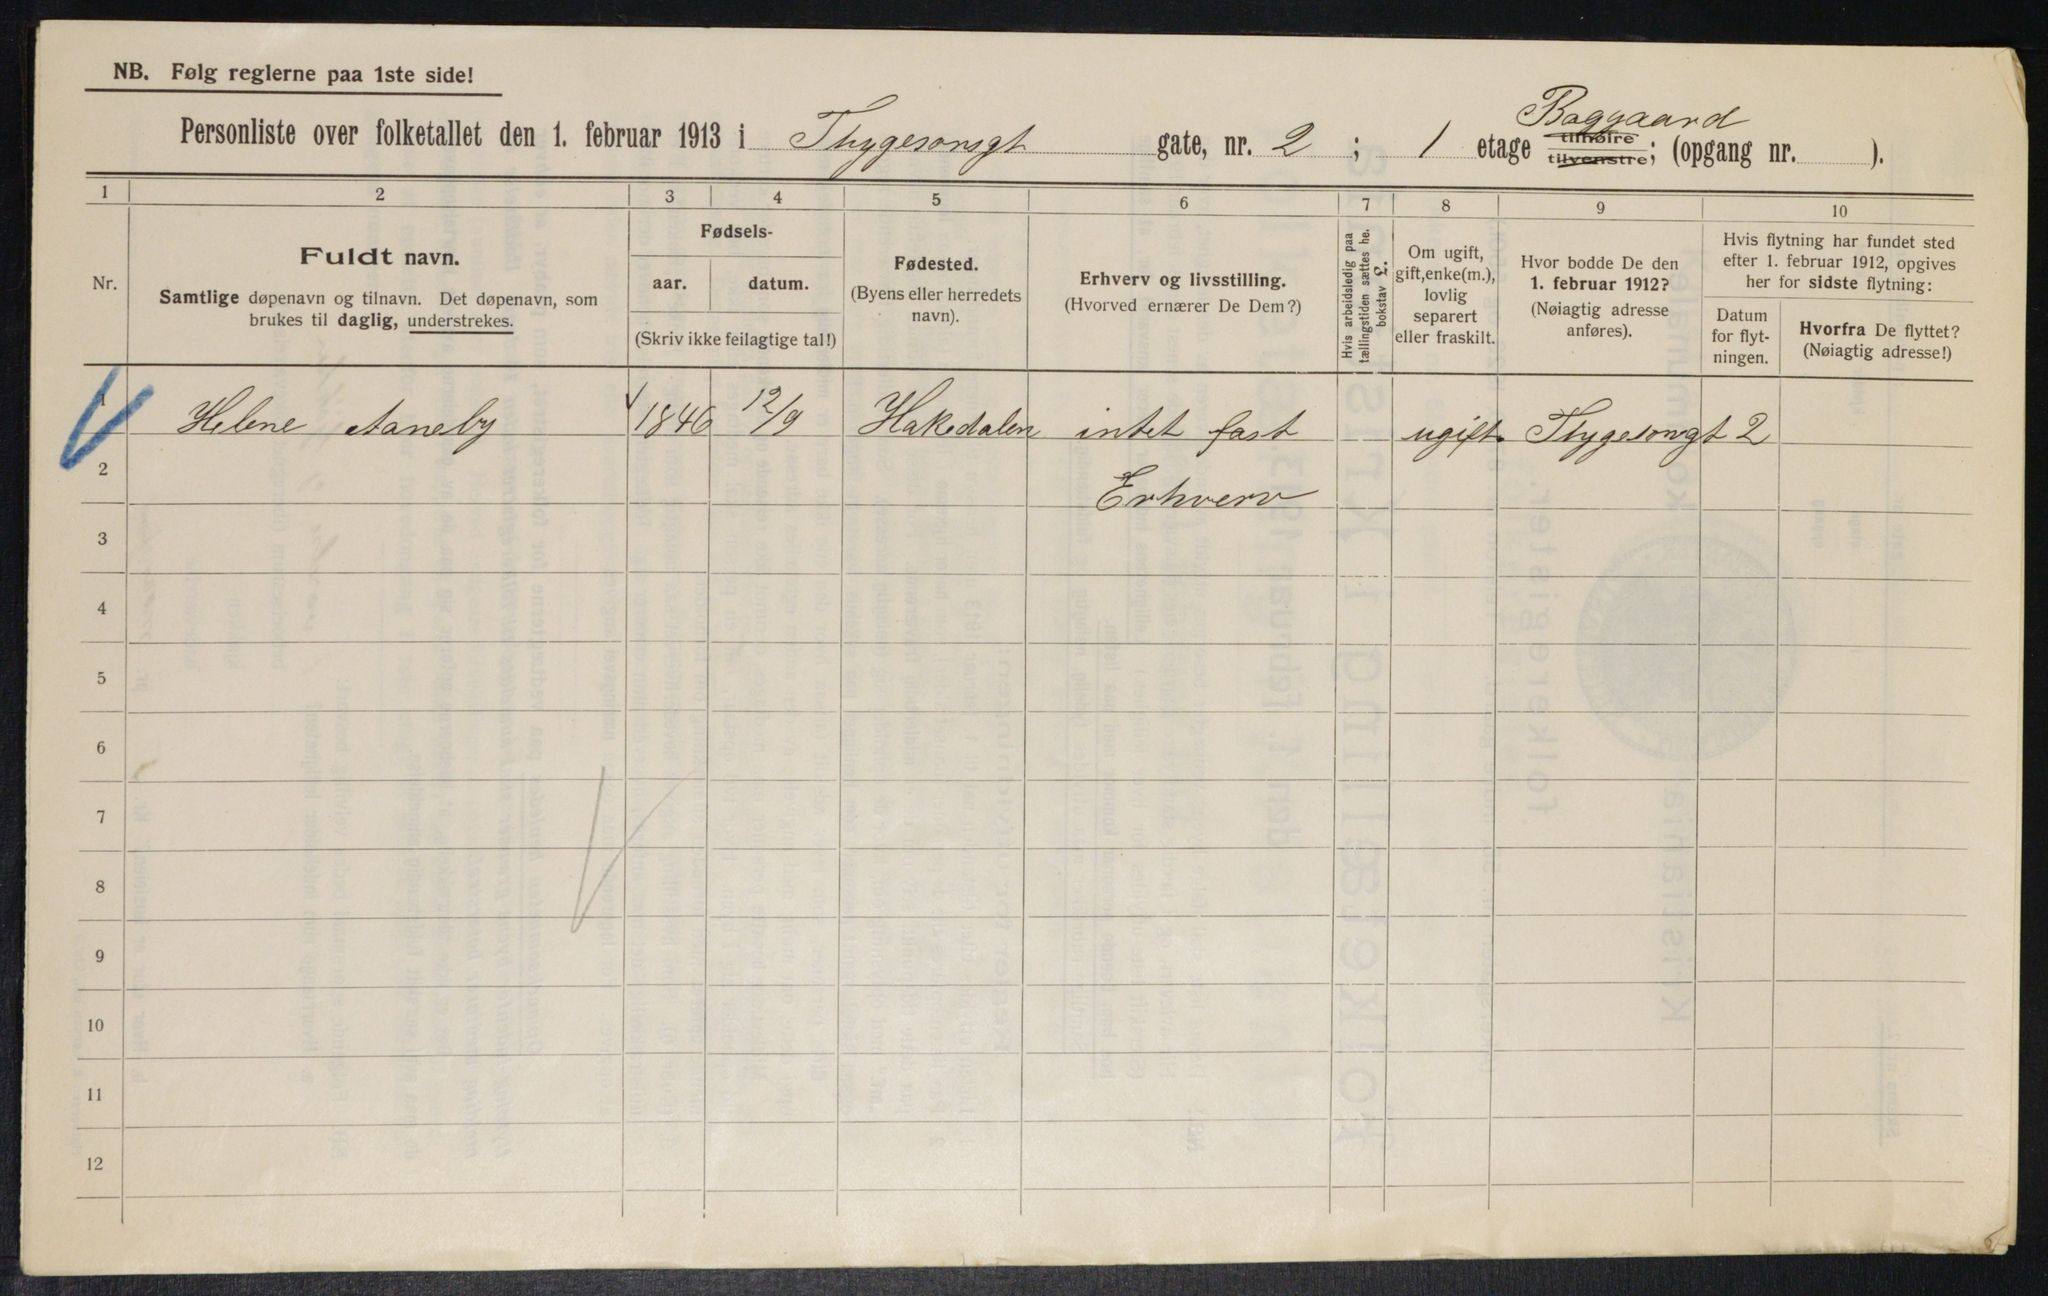 NB. Følg reglerne paa 1ste side!
Baggaard
Personliste over folketallet den 1. februar 1913 i Thygesonsgt gate, nr. 2 ; 1 etage tilhøire tilvenstre; (opgang nr. ).
1 2 3 4 5 6 7 8 9 10
Nr.
Fuldt navn.
Samtlige døpenavn og tilnavn. Det døpenavn, som
brukes til daglig, understrekes.
Fødsels-
aar. datum.
(Skriv ikke feilagtige tal!)
Fødested.
(Byens eller herredets
navn).
Erhverv og livsstilling.
(Hvorved ernærer De Dem?)
Hvis arbeidsledig paa
tællingstiden sættes he.
bokstav L.
Om ugift,
gift, enke(m.),
lovlig
separert
eller fraskilt.
Hvor bodde De den
1. februar 1912?
(Nøiagtig adresse
anføres).
Hvis flytning har fundet sted
efter 1. februar 1912, opgives
her for sidste flytning:
Datum
for flyt-
ningen.
Hvorfra De flyttet?
(Nøiagtig adresse!)
1 Helene Aaneby 1846 12/9 Hakedalen intet fast ugift Thygesonsgt 2
2 Erhverv
3
4
5
6
7
8
9
10
11
12